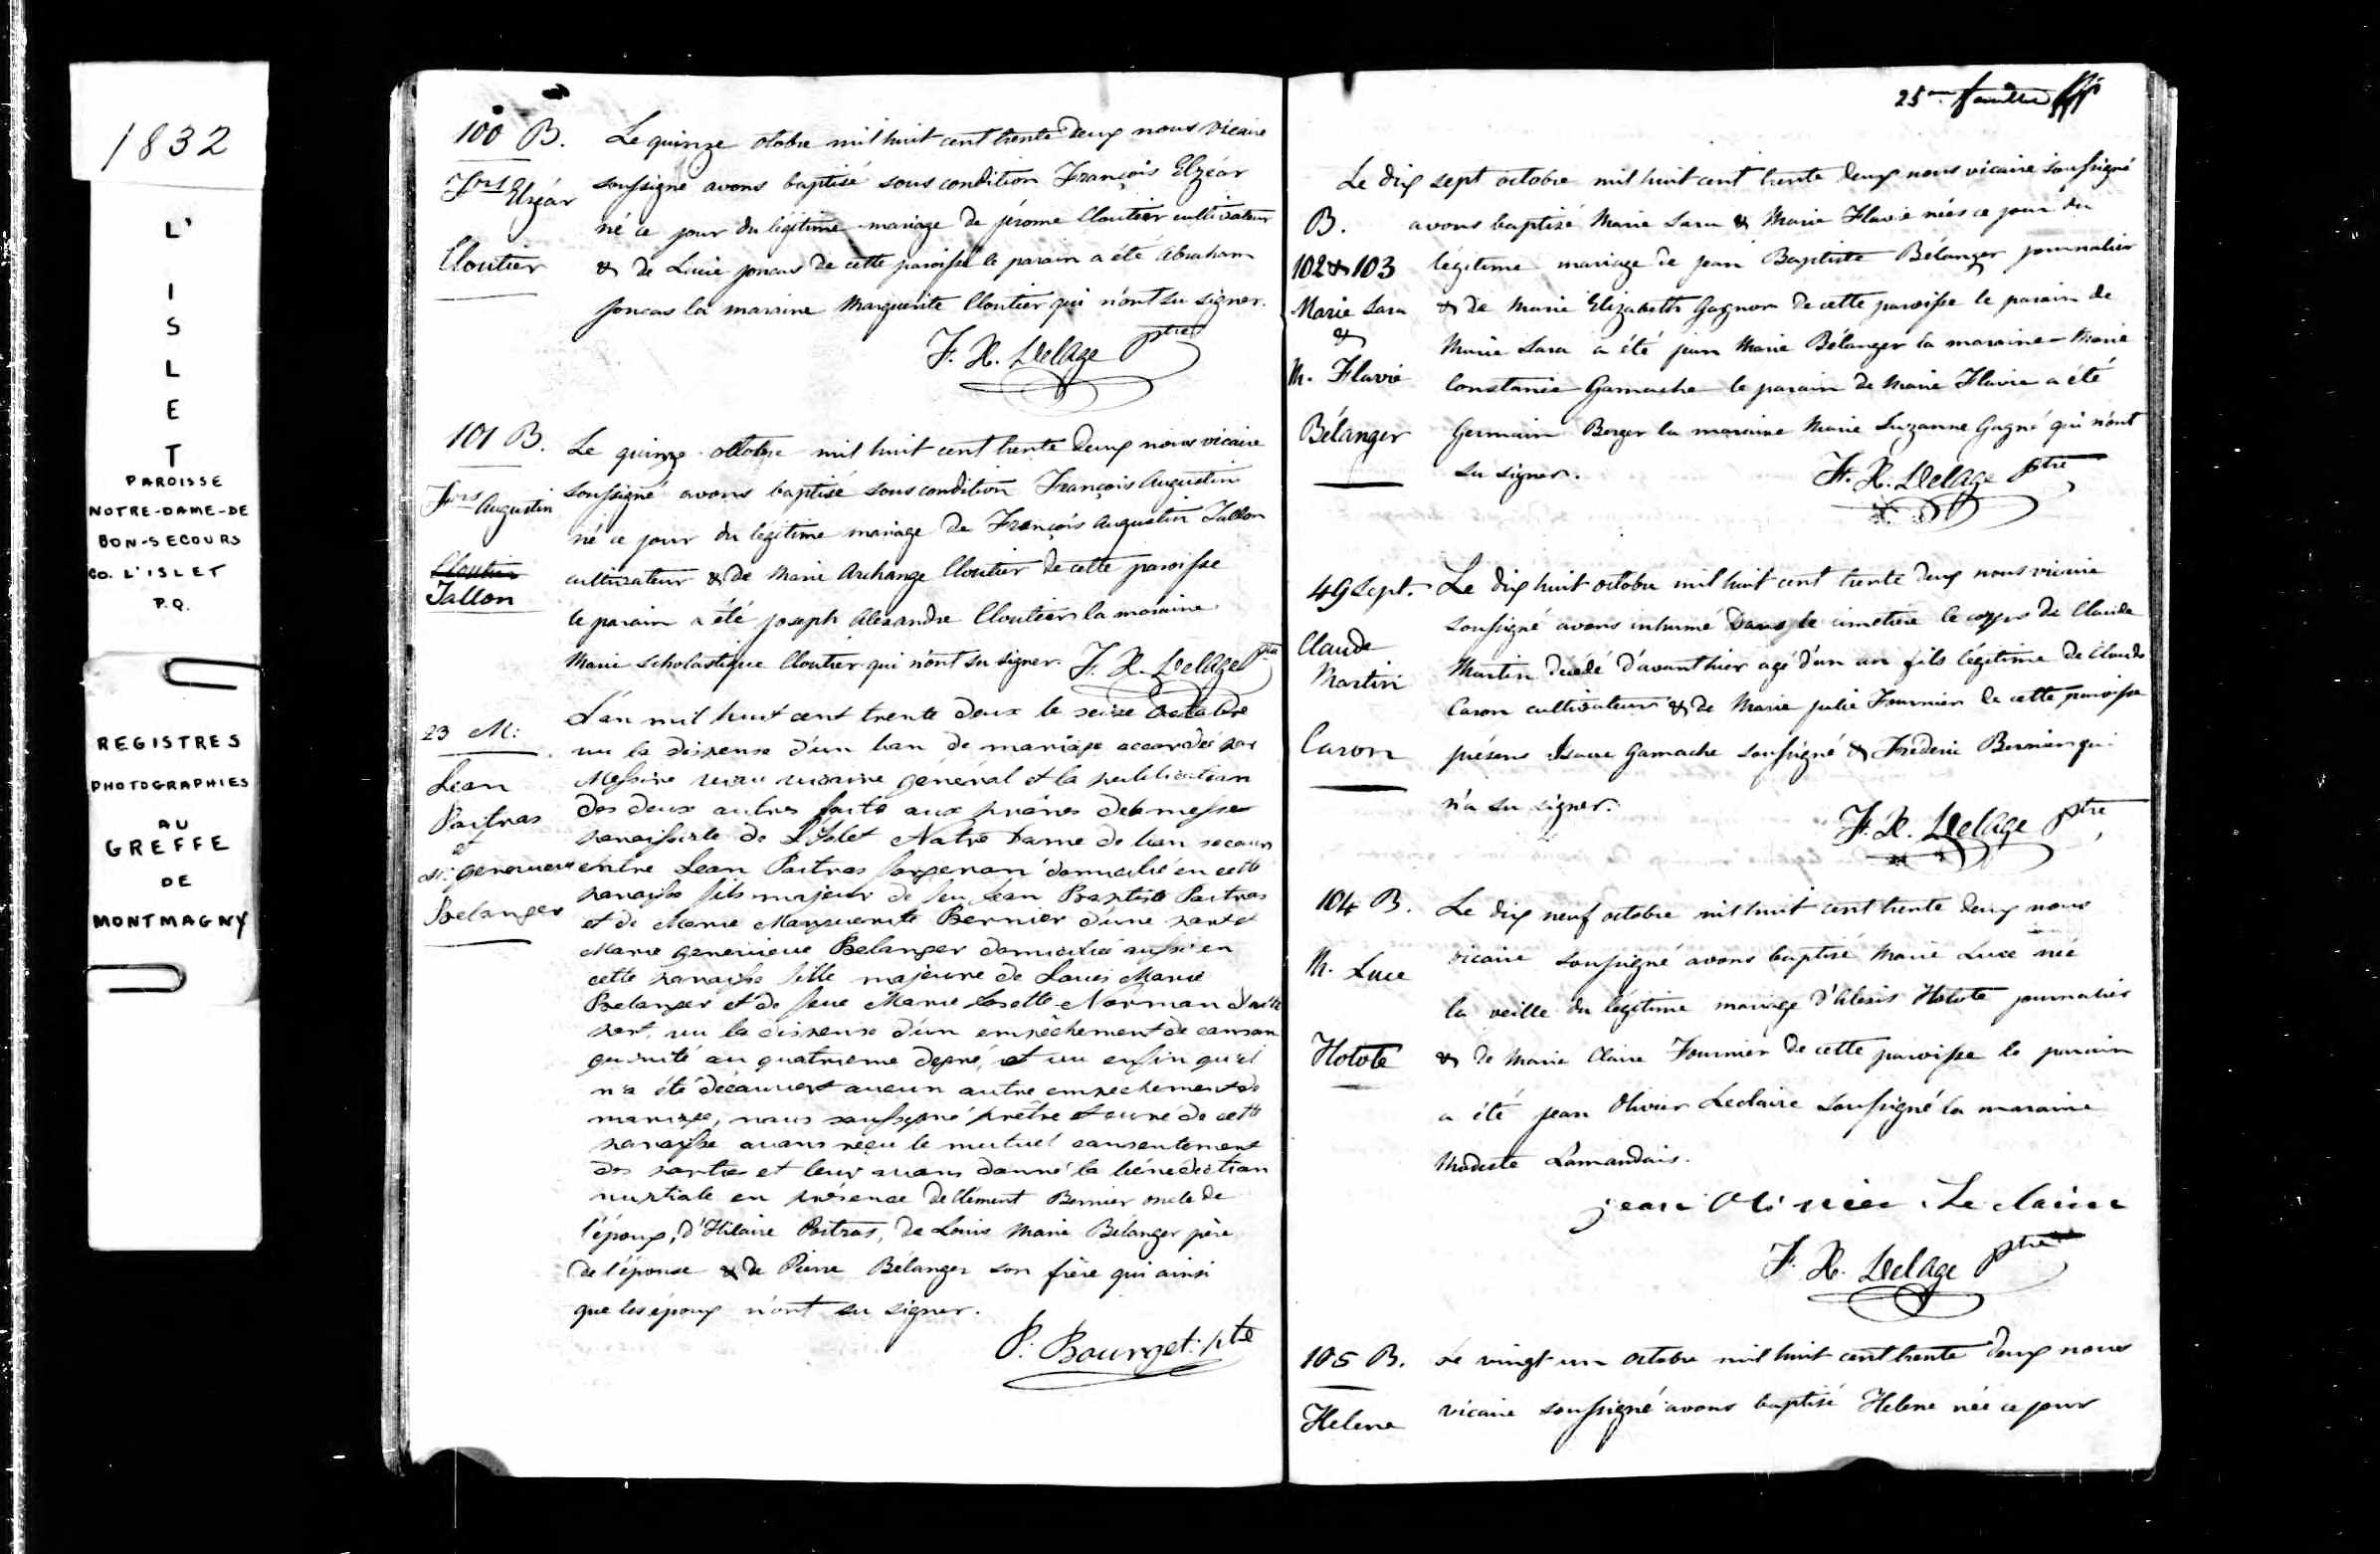 1832
L'
I
S
L
E
T
PAROISSE
NOTRE-DAME-DE
BON-SECOURS
CO. L'ISLET
P.Q.
REGISTRES
PHOTOGRAPHIES
AU
GREFFE
DE
MONTMAGNY
100 B.
Frs Elzéar
Cloutier
Le quinze otobre mil huit cent trente deux nous vicaire
soussigné avons baptisé sous condition François Elzéar
né ce jour du légitime mariage de jérome Cloutier cultivateur
& de Lucie joncas de cette paroisse le parain a été Abraham
joncas la maraine Marguerite Cloutier qui n'ont su signer.
F. X. Delage ptre
101 B.
Frs Augustin
Cloutier
Tallon
Le quinze octobre mil huit cent trente deux nous vicaire
soussigné avons baptisé sous condition François Augustin
né ce jour du légitime mariage de François Augustin Tallon
cultivateur & de Marie Archange Cloutier de cette paroisse
le parain a été joseph Alexandre Cloutier la maraine
Marie Scholastique Cloutier qui n'ont su signer. F. X. Delage ptre
23 M:
Jean
Poitras
et
M: genevieve
Belanger
L'an mil huit cent trente deux le seize octobre
vu la dispense d'un ban de mariage accordée par
Messire vicaire général et la publication
des deux autres faite aux prônes de la messe
paroissiale de L'Islet Notre Dame de bon secours
entre Jean Poitras forgeron domicilié en cette
paroisse fils majeur de feu Jean Baptiste Poitras
et de Marie Marguerite Bernier d'une part et
Marie genevieve Belanger domiciliée aussi en
cette paroisse fille majeure de Louis Marie
Belanger et de feue Marie Josette Norman d'autre
part, vu la dispense d'un empêchement de consan
guinité au quatrieme degré, et vu enfin qu'il
n'a été découvert aucun autre empechement de
mariage, nous soussigné prêtre et curé de cette
paroisse avons reçu le mutuel consentement
des parties et leur avons donné la bénédiction
nuptiale en présence de Clément Bernier oncle de
l'époux, d'Hilaire Poitras, de Louis Marie Bélanger père
de l'épouse & de Pierre Bélanger son frère qui ainsi
que les époux n'ont su signer.
P. Bourget. pte
25me feuillet
B.
102 & 103
Marie Sara
&
M. Flavie
Bélanger
Le dix sept octobre mil huit cent trente deux nous vicaire soussigné
avons baptisé Marie Sara & Marie Flavie nées ce jour du
légitime mariage de jean Baptiste Bélanger journalier
& de Marie Elizabeth Gagnon de cette paroisse le parain de
Marie Sara a été jean Marie Bélanger la maraine Marie
Constance Gamache le parain de Marie Flavie a été
Germain Berger la maraine Marie Suzanne Gagné qui n'ont
su signer.
F. X. Delage ptre
49 Sept.
Claude
Martin
Caron
Le dix huit octobre mil huit cent trente deux nous vicaire
soussigné avons inhumé dans le cimetière le corps de Claude
Martin décédé d'avant hier agé d'un an fils légitime de Claude
Caron cultivateur & de Marie julie Fournier de cette paroisse
présens Isaac Gamache soussigné & Fréderic Bernier qui
n'a su signer.
F. X. Delage ptre
104 B.
M. Luce
Holote
Le dix neuf octobre mil huit cent trente deux nous
vicaire soussigné avons baptisé Marie Luce née
la veille du légitime mariage d'Alexis Holote journalier
& de Marie Claire Fournier de cette paroisse le parain
a été jean Olivier Leclaire soussigné la maraine
Modeste Lamandais.
jean Olivier Leclaire
F. X. Delage ptre
105 B.
Helene
Le vingt un octobre mil huit cent trente deux nous
vicaire soussigné avons baptisé Helene née ce jour